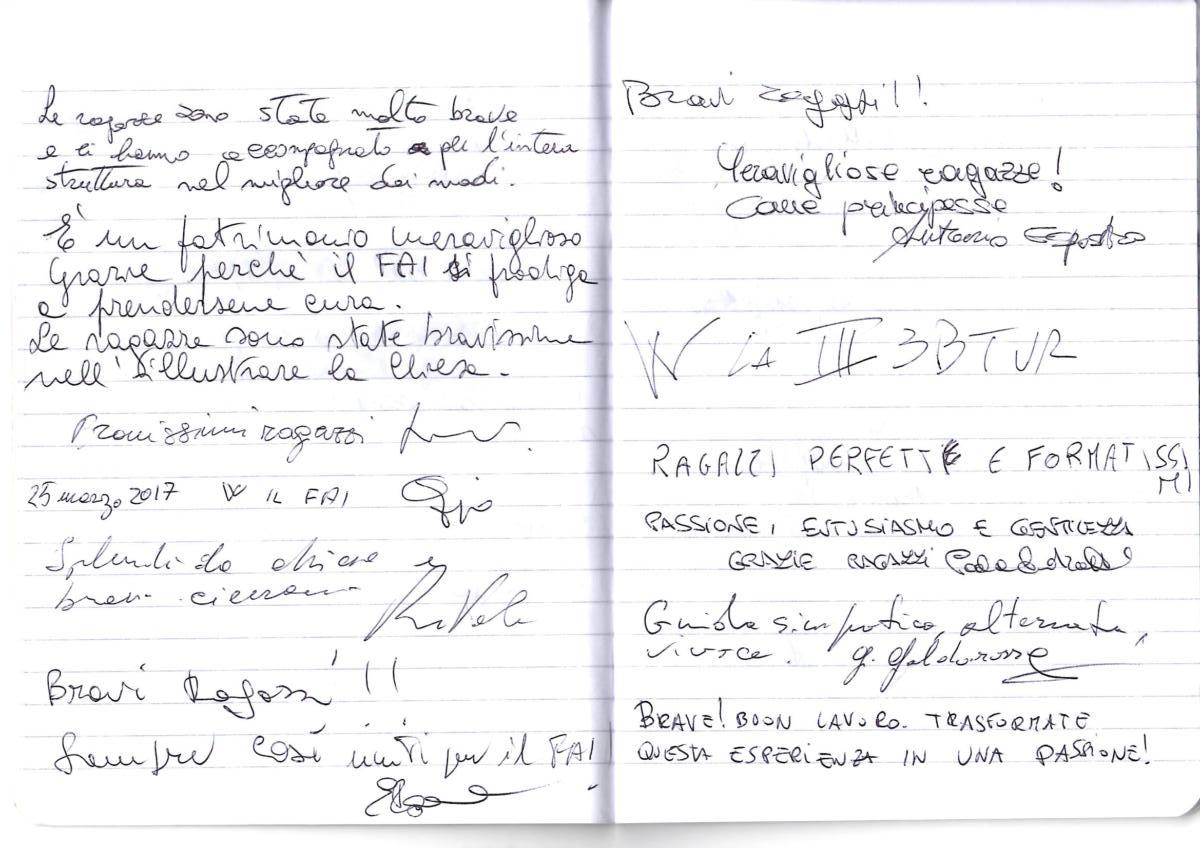 Le ragazze sono state molto brave
e ci hanno accompagnato per l'intera
struttura nel migliore dei modi.
È un patrimonio meraviglioso
Grazie perchè il FAI si prodiga
a prendersene cura.
Le ragazze sono state bravissime
nell'illustrare la Chiesa.
Bravissimi ragazzi
25 marzo 2017 W IL FAI
Splendida chiesa e
bravi ciceroni
Bravi Ragazzi!!
Sempre così uniti per il FAI
Bravi ragazzi!!!
Meravigliose ragazze!
Come principesse
Antonio Esposito
W LA III 3BTUR
RAGAZZI PERFETTI E FORMATISSI
MI
PASSIONE, ENTUSIASMO E GENTILEZZA
GRAZIE RAGAZZI
Guida simpatica, alternata,
vivace. G.
BRAVE! BUON LAVORO. TRASFORMATE
QUESTA ESPERIENZA IN UNA PASSIONE!